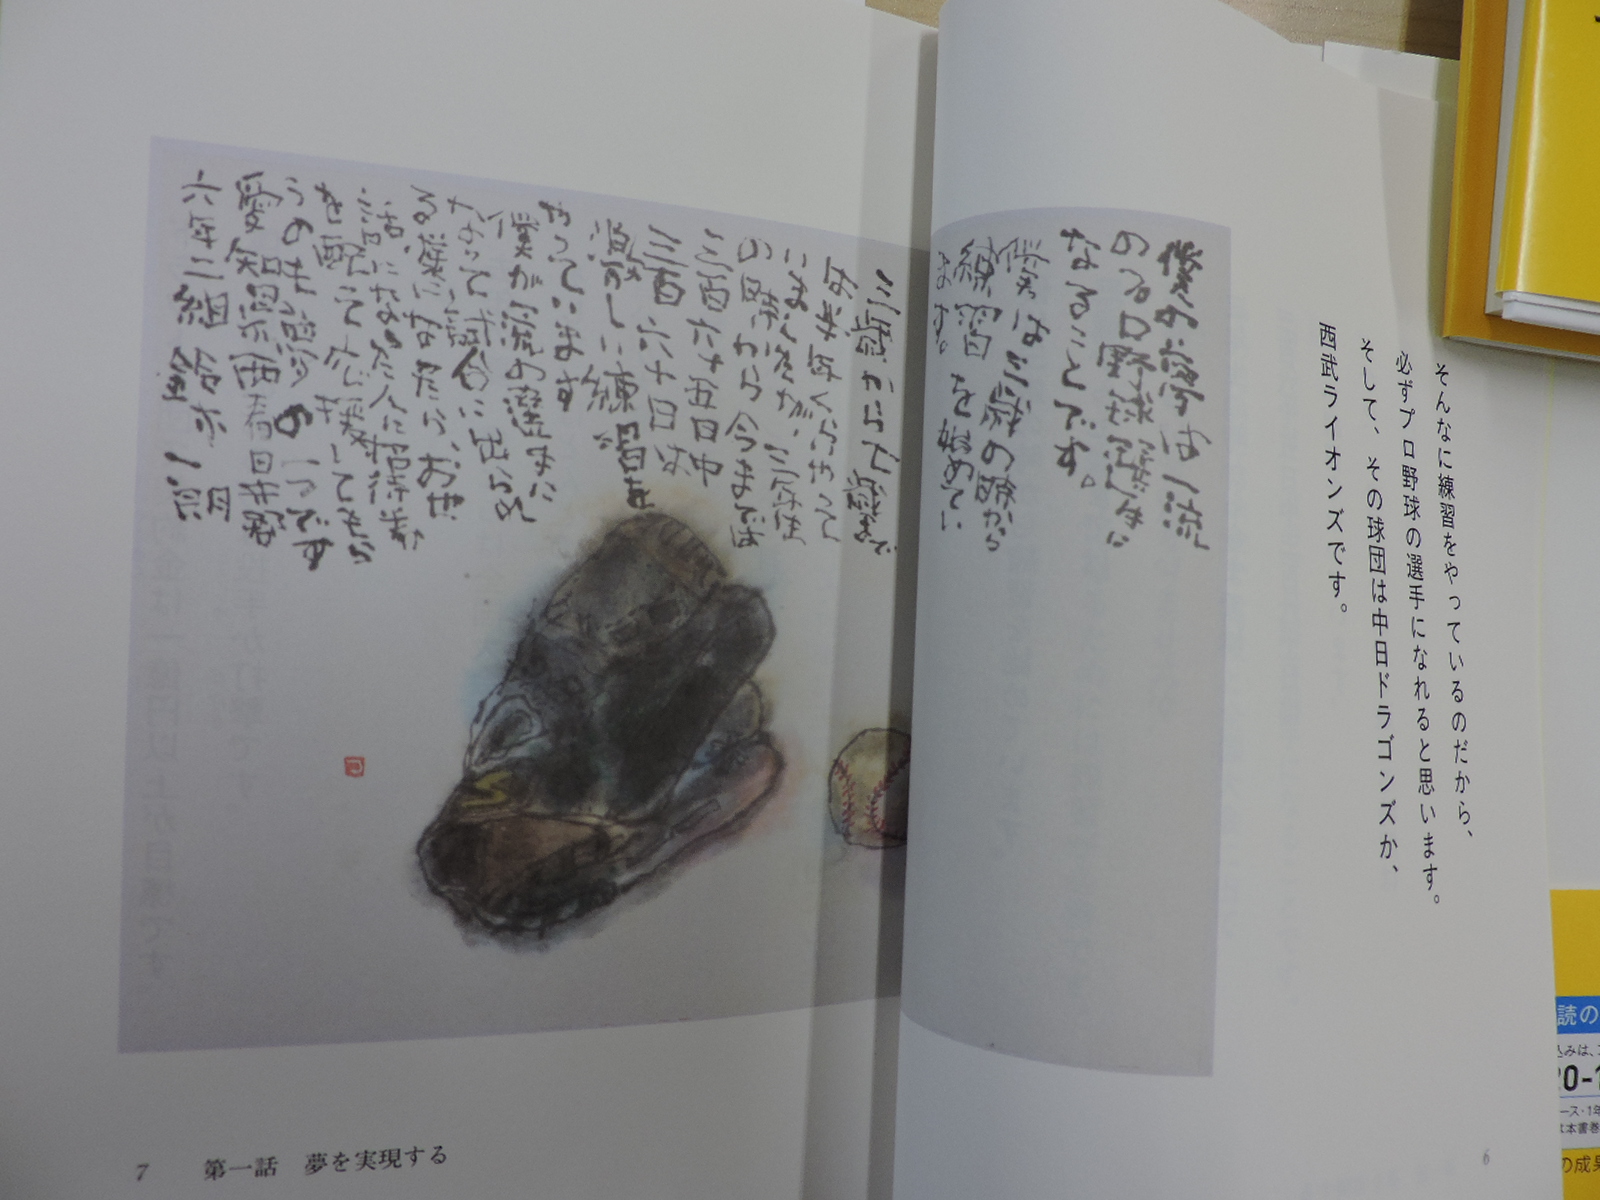 そんなに練習をやっているのだから、
必ずプロ野球の選手になれると思います。
そして、その球団は中日ドラゴンズか、
西武ライオンズです。
僕の夢は一流
のプロ野球選手に
なることです。
僕は三歳の時から
練習を始めてい
ます。
三歳から七歳まで
は半年くらいやって
いましたが、三年生
の時から今までは
三百六十五日中
三百六十日は
激しい練習を
やっています
僕が一流の選手に
なって試合に出られ
る様になったら、お世
話になった人に招待券
を配って応援してもら
うのも夢の一つです
愛知県西春日井郡
六年二組 鈴木一朗
6
7 第一話 夢を実現する
読の
込みは、
20-1
ース・1年
は本書巻
の成果